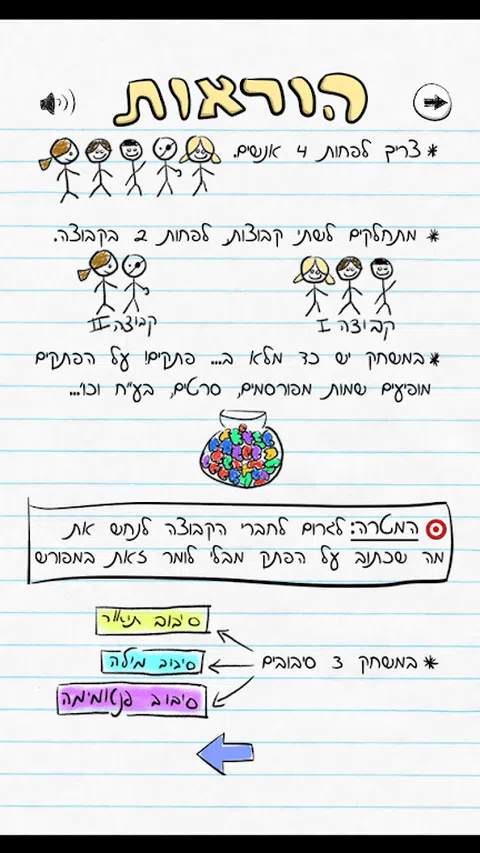 הוראות
* צריך לפחות 4 אנשים.
* מתחלקים לשתי קבוצות, לפחות 2 בקבוצה.
קבוצה I
קבוצה II
* במשחק יש כד מלא ב... פתקים! על הפתקים
מופיעים שמות מפורסמים, סרטים, בע"ח וכו'...
המטרה: לגרום לחברי הקבוצה לנחש את
מה שכתוב על הפתק מבלי לומר זאת במפורש
* במשחק 3 סיבובים
סיבוב תיאור
סיבוב מילה
סיבוב פנטומימה